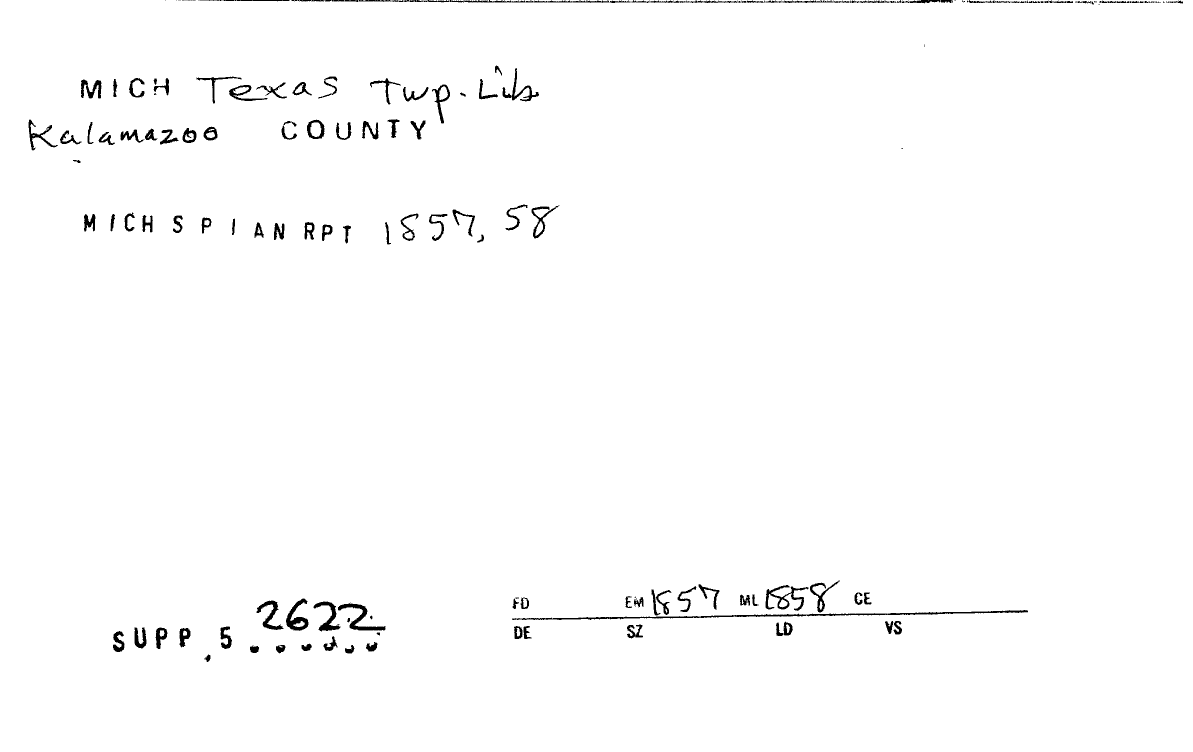 MICH Texas Twp. Lib
Kalamazoo COUNTY
MICH S P I AN RPT 1857, 58
SUPP. 5 2622
FD EM 1857 ML 1858 CE
DE SZ LD VS